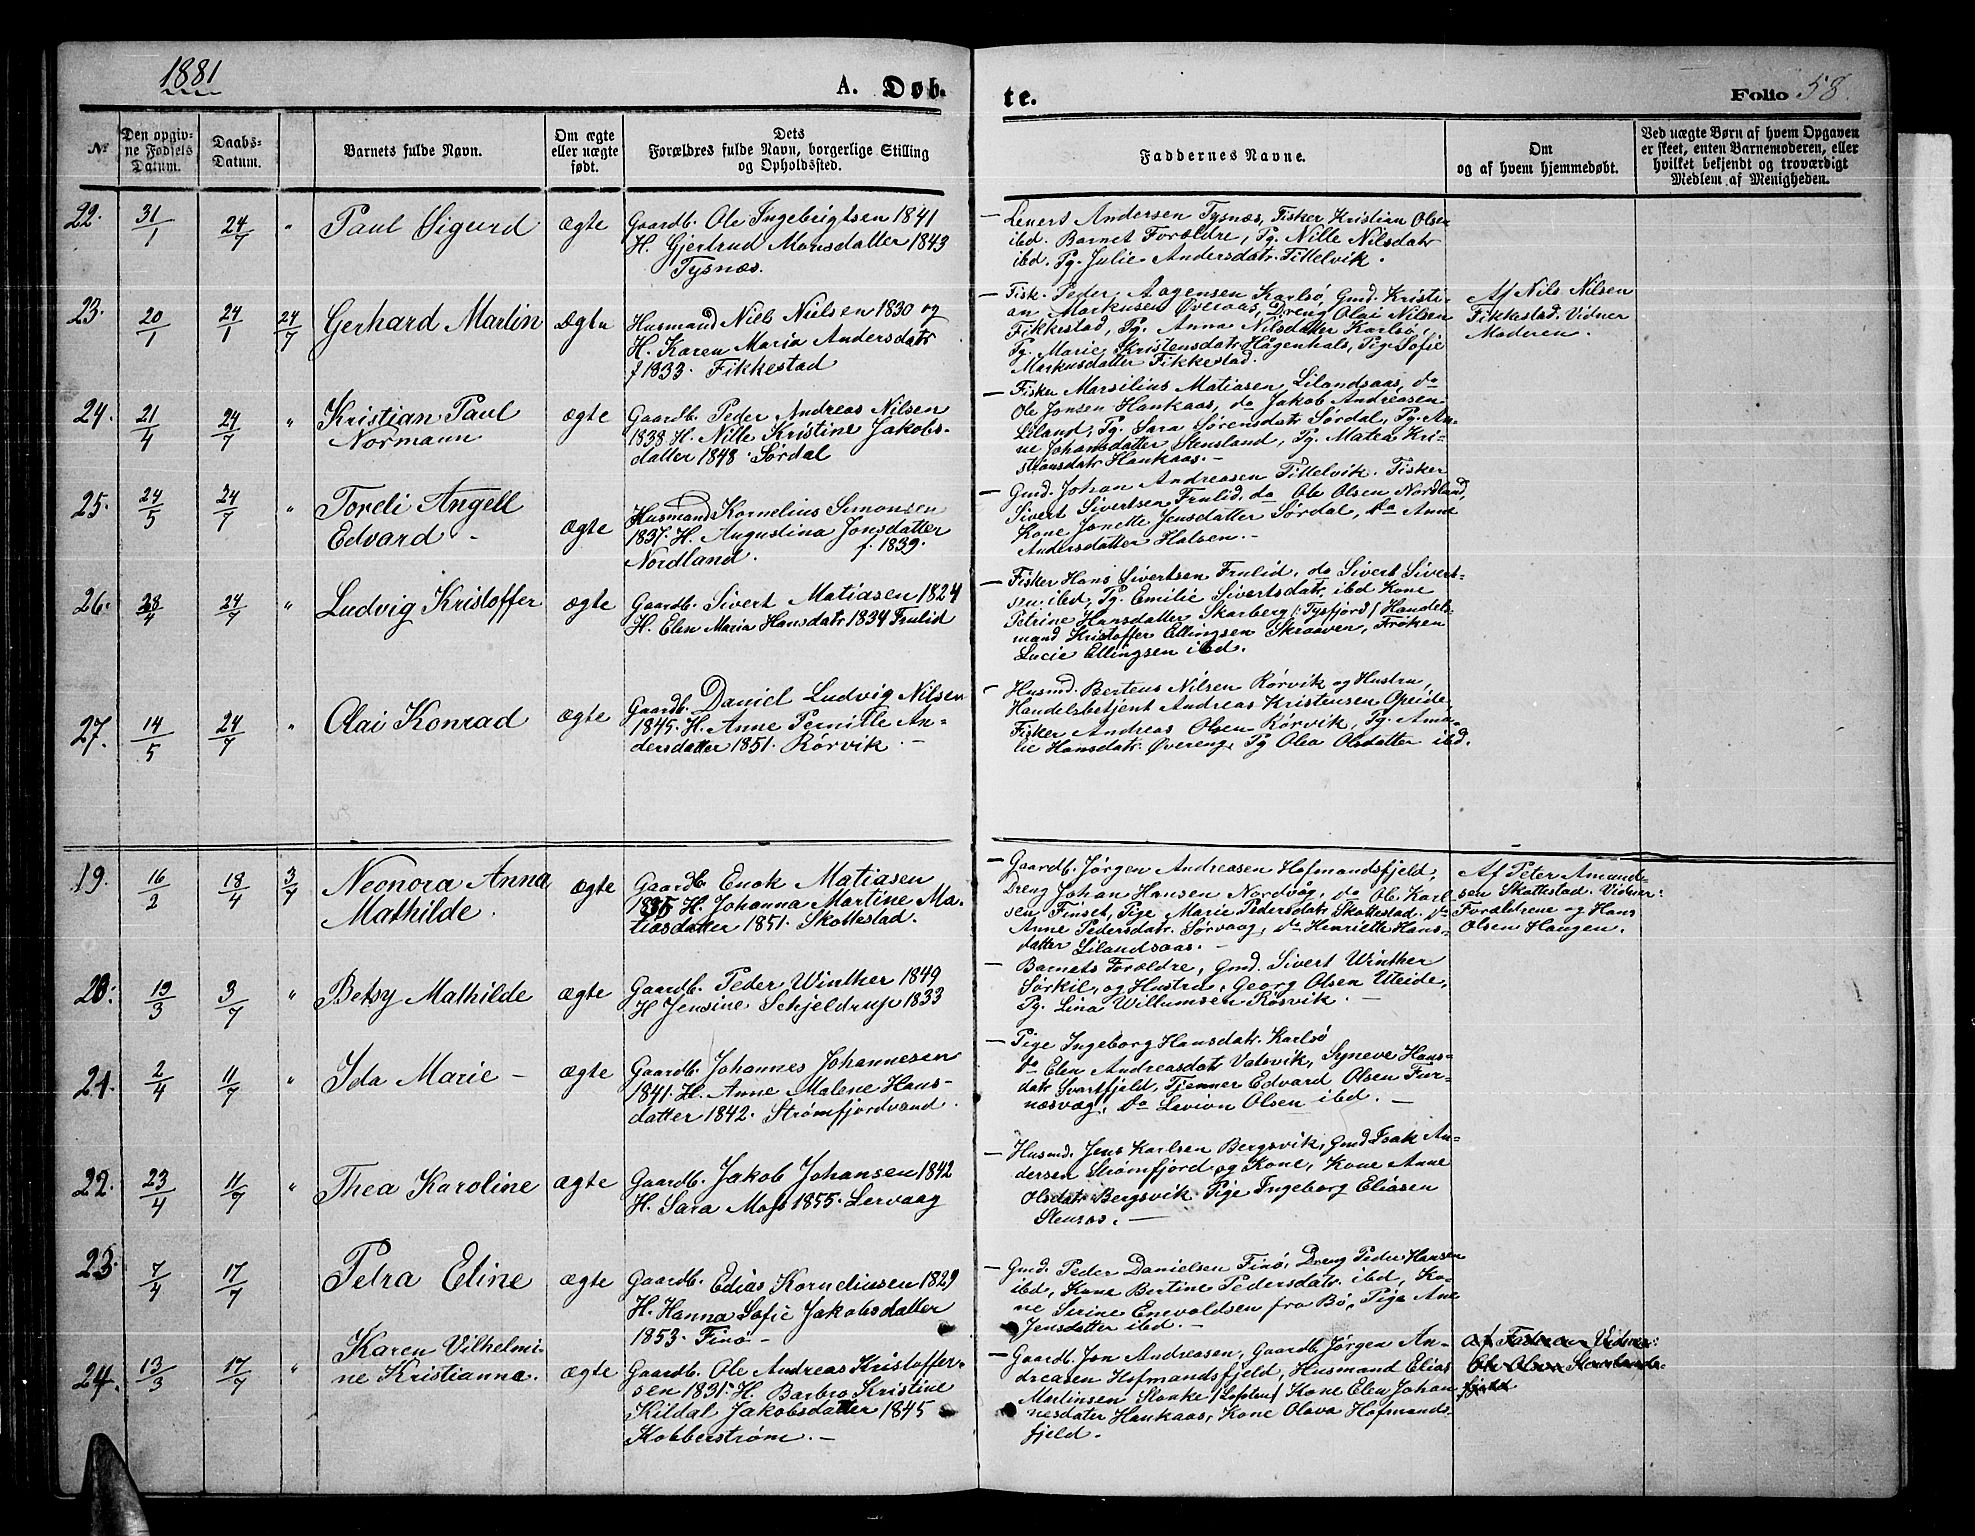 1881
A. Døb-
te.
Folio 58.
Nr
Den opgiv-
ne Fødsels
Datum.
Daabs-
Datum.
Barnets fulde Navn.
Om ægte
eller uægte
født.
Dets
Forældres fulde Navn, borgerlige Stilling
og Opholdssted.
Faddernes Navne.
Om
og af hvem hjemmedøbt.
Ved uægte Børn af hvem Opgaven
er skeet, enten Barnemoderen, eller
hvilket bekjendt og troværdigt
Medlem af Menigheden.
22. 31/1 24/7 " Paul Sigurd ægte
Gaardb. Ole Ingebrigtsen 1841
H. Gjertrud Monsdatter 1843
Tysnæs.
— Levert Andersen Tysnæs, Fisker Kristian Olsen
ibd. Barnet Forældre, Pg. Nille Nilsdatr
ibd. Pg. Julie Andersdatr. Fittelvik.
23. 20/1 24/1 24/7 Gerhard Martin Ægte
Husmand Niels Nielsen 1830 og
H. Karen Maria Andersdatr
f 1833. Fikkestad
— Fisk. Peder Aagensen Karlsø, Gmd. Kristi-
an Markusen Øveraas, Dreng Olai Nilsen
Fikkestad, Pg. Anna Nilsdatter Karlsø,
Pg. Marie Kristensdatr Hågenhals, Pig Sofie
Markusdatter Fikkestad.
Af Nils Nilsen
Fikkestad. Vidner
Moderen.
24. 21/4 24/7 " Kristian Paul
Normann
ægte
Gaardb. Peder Andreas Nilsen
1838 H. Nille Kristine Jakobs-
datter 1848. Sørdal
— Fisker Marsilius Matiasen Lilandsaas, do
Ole Jonsen Haukaas, do Jakob Andreasen
Liland, Pg. Sara Sørensdatr Sørdal, Pg. An-
ne Johansdatter Stensland, Pg. Matea Kri-
stiansdatr Haukaas. —
25. 24/5 24/7 " Toreli Angell
Edvard -
ægte
Husmand Kornelius Simonsen
1837. H. Augustina Jonsdatter
Nordland. f. 1839.
— Gmd. Johan Andreasen Fittelvik. Fisker
Sivert Sivertsen Frulid, do Ole Olsen Nordland,
Kone Jonette Jensdatter Sørdal, do Anne
Andersdatter Halsen. —
26. 28/4 24/7 " Ludvig Kristoffer ægte
Gaardb. Sivert Matiasen 1824
H. Elen Maria Hansdatr 1834 Frulid
— Fisker Hans Sivertsen Frulid, do Sivert Sivert-
sen. ibd, Pg. Emilie Sivertsdatr. ibd Kone
Petrine Hansdatter Skarberg /: Tysfjord / Handels-
mand Kristoffer Ellingsen Skraaven, Frøken
Lucie Ellingsen ibd.
27. 14/5 24/7 " Olai Konrad ægte
Gaardb. Daniel Ludvig Nilsen
1845. H. Anne Pernille An-
dersdatter 1851. Rørvik. —
— Husmd. Berteus Nilsen Rørvik og Hustru,
Handelsbetjent Andreas Kristensen Opeide,
Fisker Andreas Olsen Rørvik, Pg. Ama-
lie Hansdatr. Øvereng, Pg Olea Olsdatter ibd.
19. 16/2 18/4 3/7 Neonora Anna
Mathilde.
ægte
Gaardb. Enok Matiasen
1835 H. Johanna Martine Ma-
tiasdatter 1851. Skottestad.
— Gaardb. Jørgen Andreasen Hofmandsfjeld,
Dreng Johan Hansen Nordvåg, do Ole Karl-
sen Finset, Pige Marie Pedersdatr. Skottestad. do
Anne Pedersdatr. Sørvaag, do Henriette Hans-
datter Lilandsaas. —
Af Peter Amund-
sen Skottestad. Vidner:
Forældrene og Hans
Olsen Haugen.
20. 19/3 3/7 " Betsy Mathilde ægte
Gaardb. Peder Winther 1849
H Jensine Schjeldrup 1833
— Barnets Forældre, Gmd. Sivert Winther
Sørkil, og Hustru, Georg Olsen Uteide,
Pg. Lina Willumsen Røsvik. —
21. 2/4 11/7 " Ida Marie — ægte
Gaardb. Johannes Johannesen
1841. H. Anne Malene Hans-
datter 1842. Strømfjordvand.
— Pige Ingeborg Hansdatr. Karlsø
do Elen Andreasdat Valsvik, Syneve Hans-
datr Svartfjeld, Tjenner Edvard Olsen Fur-
næsvåg, do Levion Olsen ibd. —
22. 23/4 11/7 " Thea Karoline ægte
Gaardb. Jakob Johansen 1842
H. Sara Mos 1855. Lervaag
— Husmd. Jens Karlsen Bergsvik, Gmd Isak An-
dersen Strømfjord og Kone, Kone Anne
Olsdatr Bergsvik. Pige Ingeborg Eliasen
Stensos. —
23. 7/4 17/7 Petra Eline ægte
Gaardb. Edias Korneliusen 1829
H. Hanna Sofie Jakobsdatter
1853. Finø —
— Gmd. Peder Danielsen Finø, Dreng Peder Hansen
ibd, Kone Bertine Pedersdatr. ibd, Ko-
ne Serine Enevoldsen fra Bø, Pige Ane
Jensdatter ibd. —
24. 13/3 17/7 " Karen Vilhelmi-
ne Kristianna.
ægte
Gaardb. Ole Andreas Kristoffer-
sen 1835 H. Barbro Kristine
Kildal Jakobsdatter 1845
Kobberstrøm. —
— Gaardb. Jon Andreasen, Gaardb. Jørgen An-
dreasen Hofmandsfjeld, Husmand Elias
Martinsen Stokke / Lofoten / Kone Elen Johan
nesdatter Haukaas, Kone Olava Hofmands-
fjeld.
af Faderen Vidner: